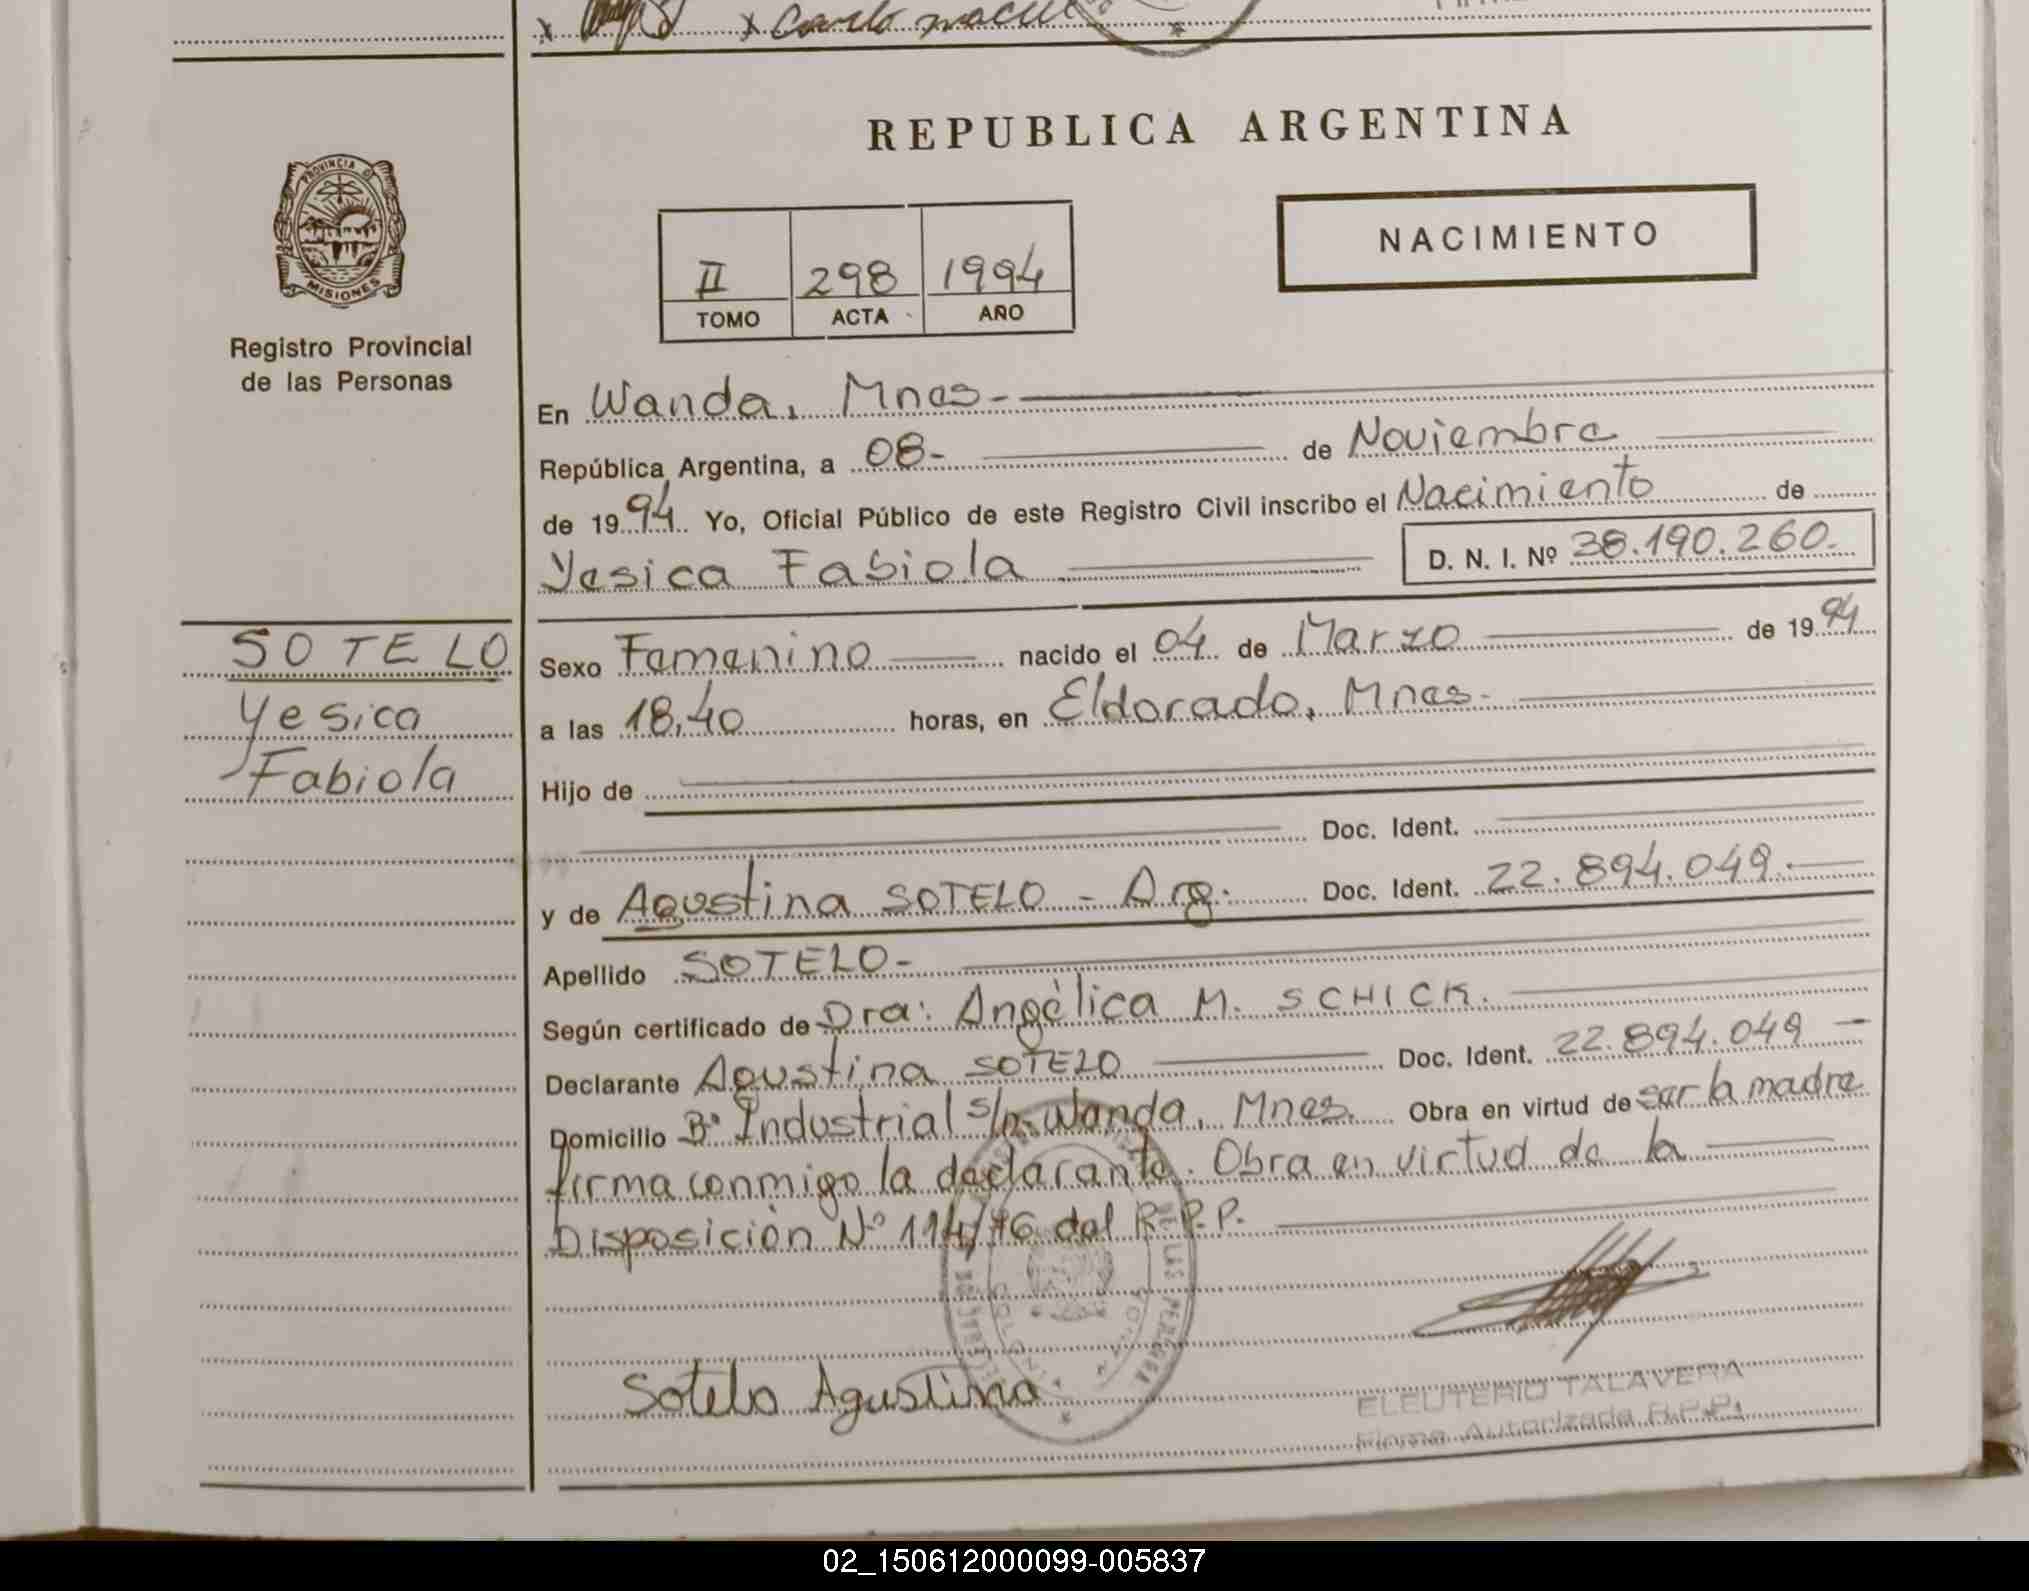 x x Carlo
PROVINCIA D
MISIONES
Registro Provincial
de las Personas
REPUBLICA ARGENTINA
NACIMIENTO
II 298 1994
TOMO ACTA AÑO
En Wanda, Mnes-
República Argentina, a 08- de Noviembre
de 1994 Yo, Oficial Público de este Registro Civil inscribo el Nacimiento de
Yesica Fabiola D. N. I. Nº 38.190.260.
SOTELO
Yesica
Fabiola
Sexo Femenino nacido el 04 de Marzo de 1994
a las 18,40 horas, en Eldorado, Mnes-
Hijo de
Doc. Ident.
y de Agustina SOTELO - Arg. Doc. Ident. 22.894.049.
Apellido SOTELO-
Según certificado de Dra: Angélica M. SCHICK.
Declarante Agustina SOTELO Doc. Ident. 22.894.049 -
Domicilio Bº Industrial s/n. Wanda, Mnes. Obra en virtud de ser la madre
firma conmigo la declarante. Obra en virtud de la
Disposición Nº 114/76 del R.P.P.
DE LAS PERSONAS
Sotelo Agustina
ELEUTERIO TALAVERA
Firma Autorizada R.P.P.
02_150612000099-005837